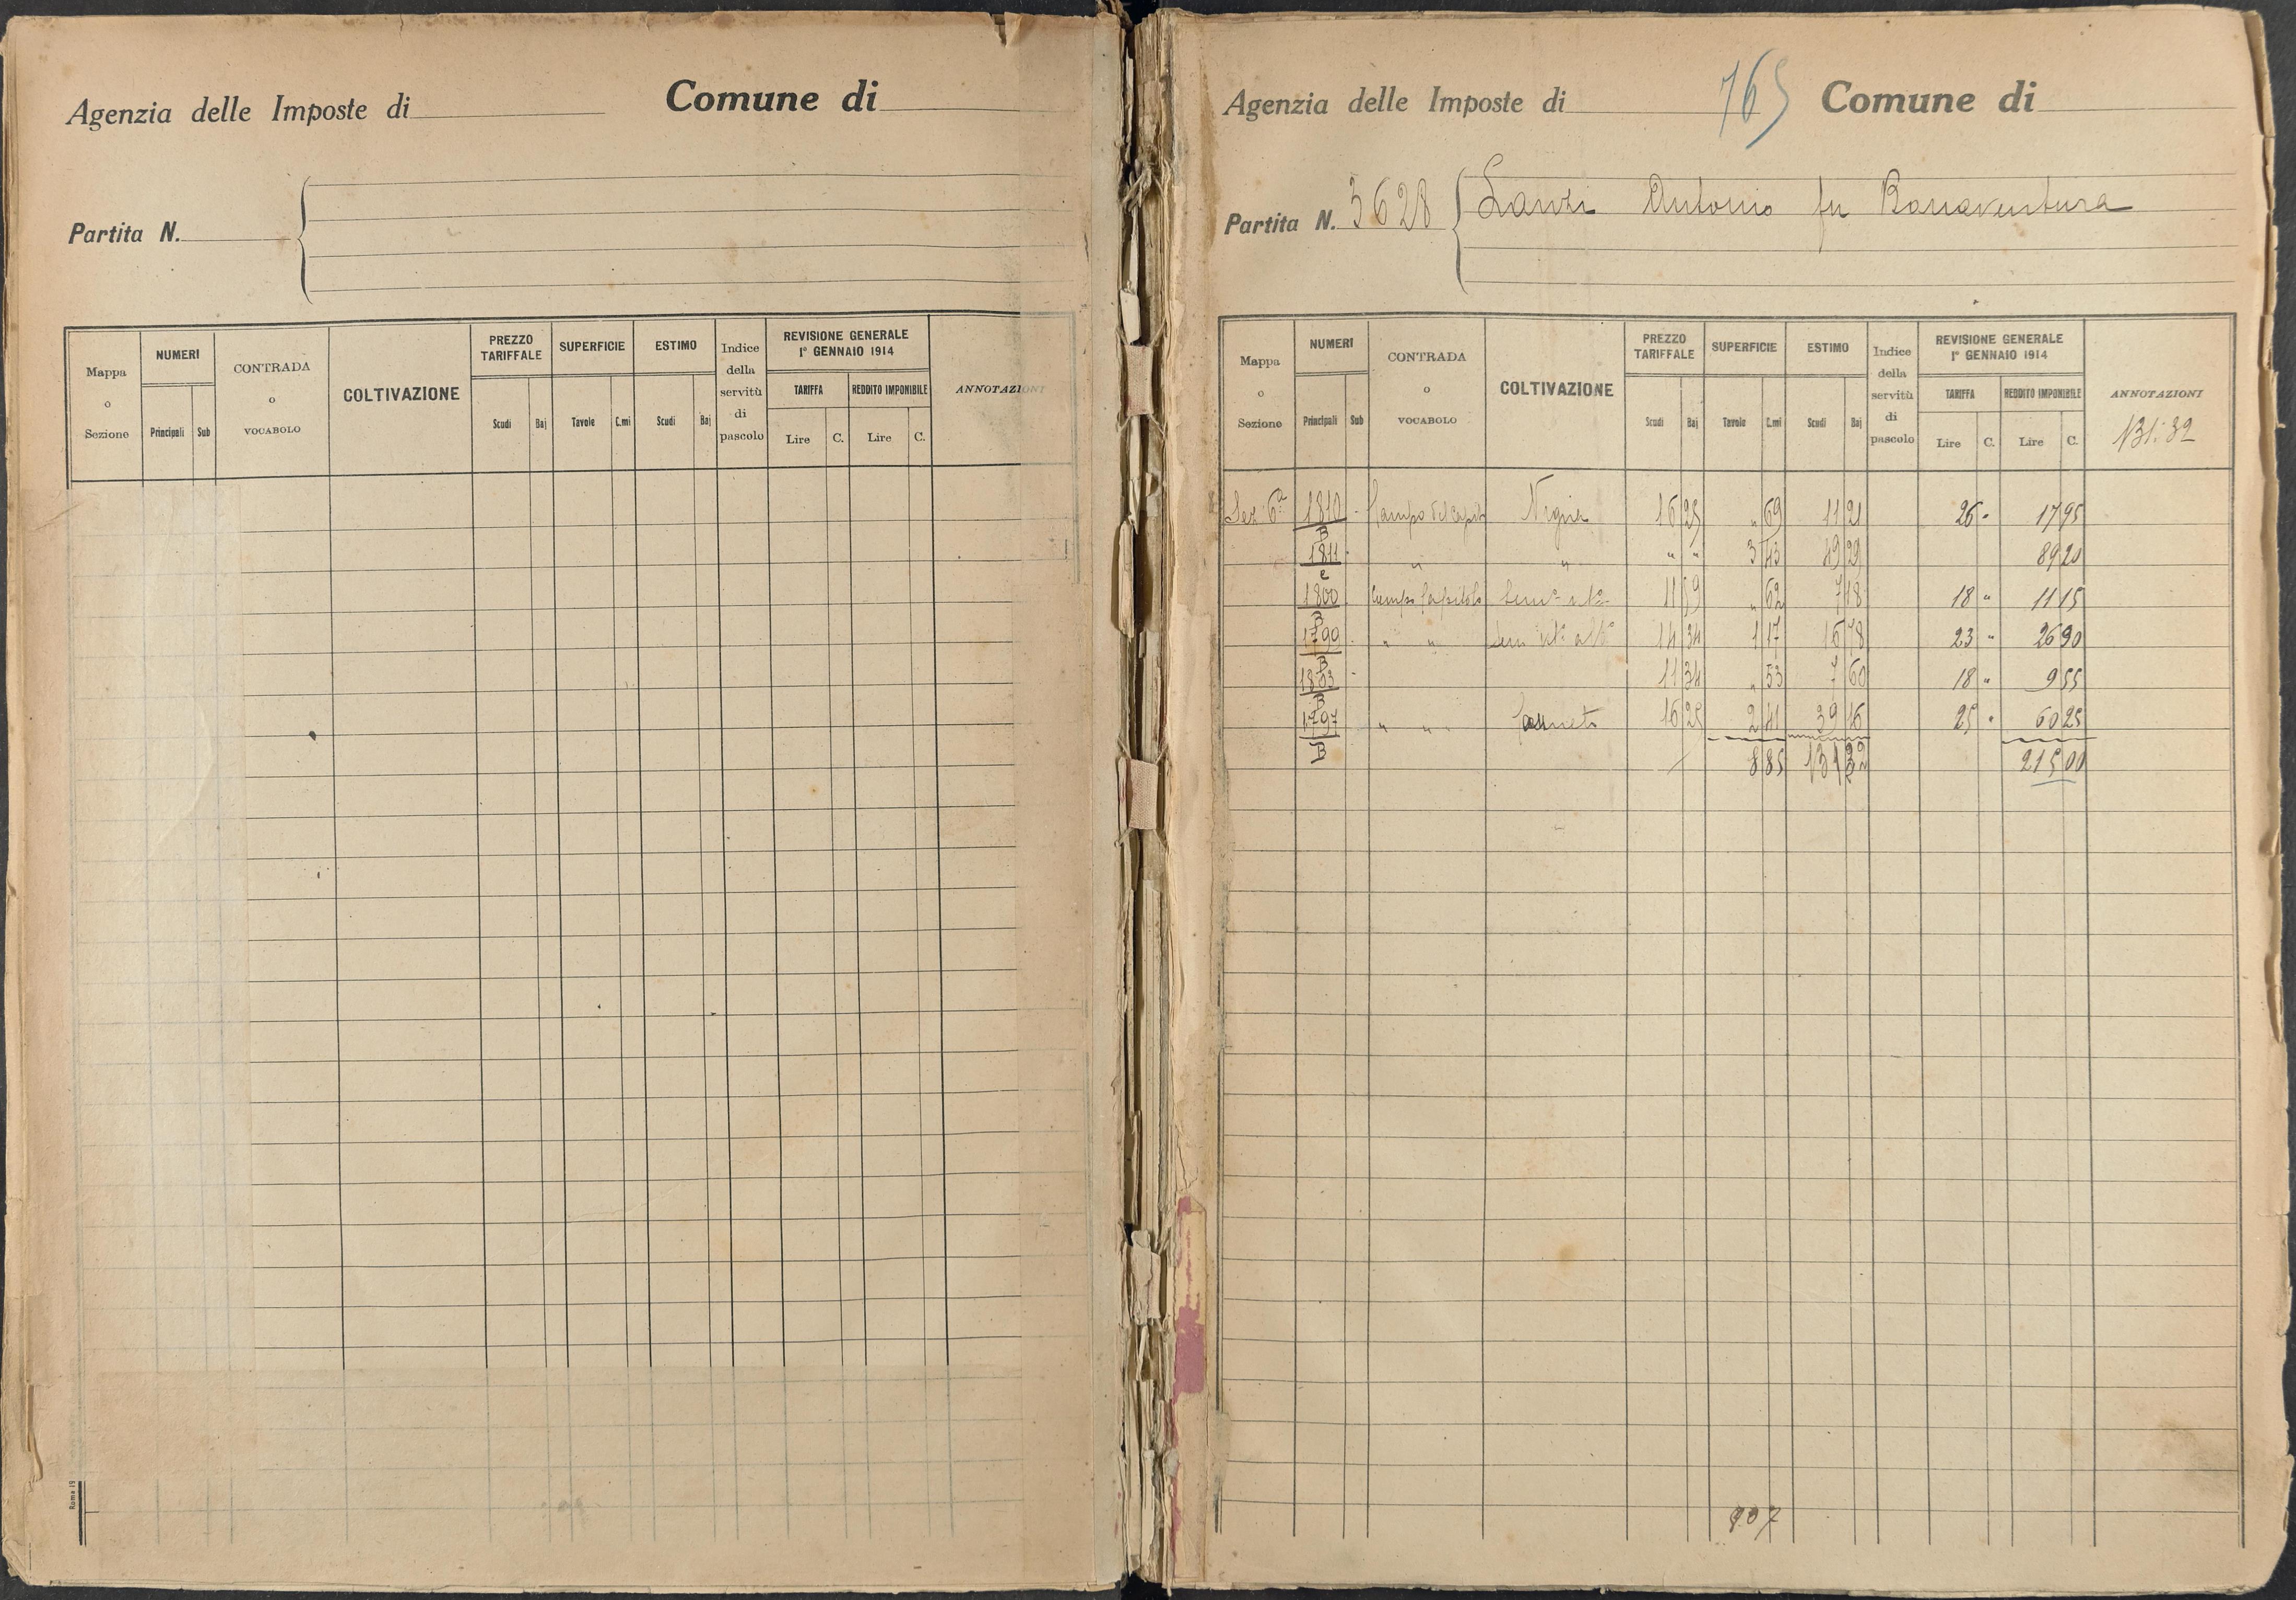 Agenzia delle Imposte di Comune di
Partita N.
Mappa o Sezione NUMERI CONTRADA o VOCABOLO COLTIVAZIONE PREZZO TARIFFALE SUPERFICIE ESTIMO Indice della servitù di pascolo REVISIONE GENERALE 1° GENNAIO 1914 ANNOTAZIONI
TARIFFA REDDITO IMPONIBILE
Principali Sub Scudi Baj Tavole C.mi Scudi Baj Lire C. Lire C.
Roma 19
765
Agenzia delle Imposte di Comune di
Partita N. 3628 Lanzi Antonio fu Bonaventura
Mappa o Sezione NUMERI CONTRADA o VOCABOLO COLTIVAZIONE PREZZO TARIFFALE SUPERFICIE ESTIMO Indice della servitù di pascolo REVISIONE GENERALE 1° GENNAIO 1914 ANNOTAZIONI
TARIFFA REDDITO IMPONIBILE
Principali Sub Scudi Baj Tavole C.mi Scudi Baj Lire C. Lire C.
131:32
Sez. 6ª 1810 B Campo del Vigna 16 25 " 69 11 21 26 " 17 95
1811 e " " " " 3 43 49 29 89 20
1800 B Campo Capitolo 11 59 " 62 7 18 18 " 11 15
1799 B " " Sem vit° alb° 14 34 1 17 16 78 23 " 26 90
1803 B 11 34 " 53 7 60 18 " 9 55
1797 B " " Canneto 16 25 2 41 39 16 25 " 60 25
8 85 131 32 215 00
907